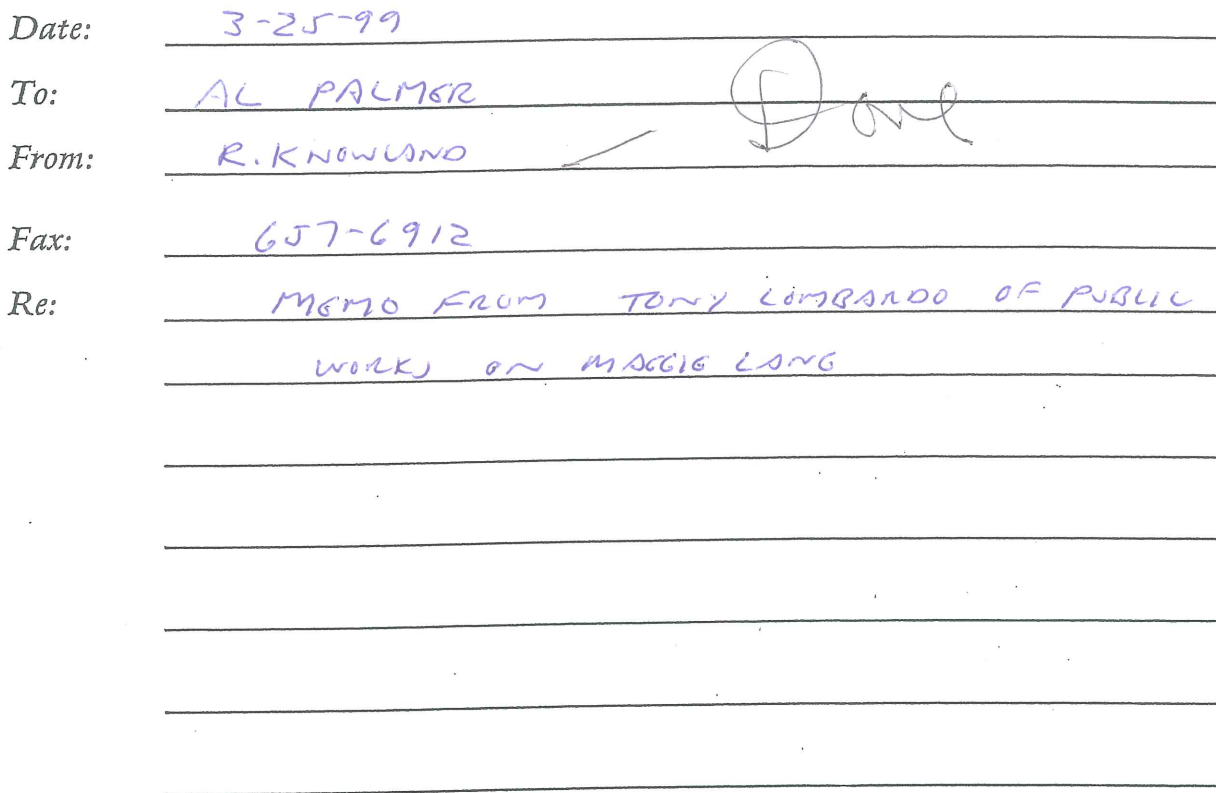 Date: 3-25-99
To: AL PALMER
Done
From: R. KNOWLAND
Fax: 657-6912
Re: MEMO FROM TONY LOMBARDO OF PUBLIC
WORKS ON MAGGIE LANE